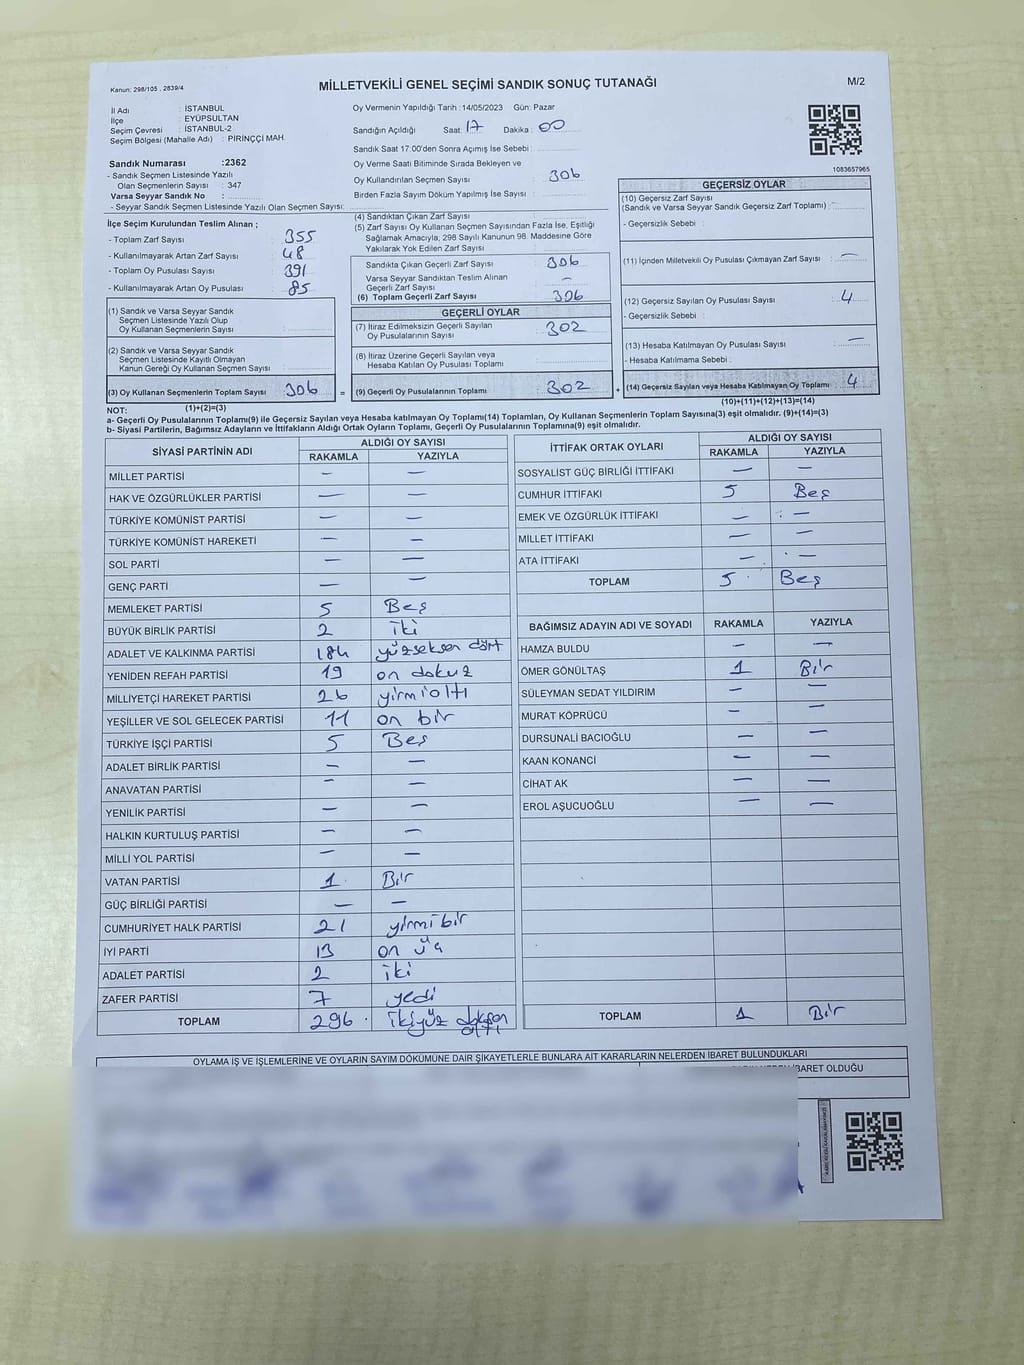 Kanun: 298/105 , 2839/4
MİLLETVEKİLİ GENEL SEÇİMİ SANDIK SONUÇ TUTANAĞI
M/2
İl Adı : İSTANBUL
İlçe : EYÜPSULTAN
Seçim Çevresi : İSTANBUL-2
Seçim Bölgesi (Mahalle Adı) : PİRİNÇÇİ MAH.
Sandık Numarası :2362
- Sandık Seçmen Listesinde Yazılı
Olan Seçmenlerin Sayısı : 347
Varsa Seyyar Sandık No :
- Seyyar Sandık Seçmen Listesinde Yazılı Olan Seçmen Sayısı:
Oy Vermenin Yapıldığı Tarih : 14/05/2023 Gün: Pazar
Sandığın Açıldığı Saat: 17 Dakika : 00
Sandık Saat 17.00'den Sonra Açımış İse Sebebi :
Oy Verme Saati Bitiminde Sırada Bekleyen ve
Oy Kullandırılan Seçmen Sayısı : 306
Birden Fazla Sayım Döküm Yapılmış İse Sayısı :
1083657965
İlçe Seçim Kurulundan Teslim Alınan ;
- Toplam Zarf Sayısı : 355
- Kullanılmayarak Artan Zarf Sayısı : 48
- Toplam Oy Pusulası Sayısı : 391
- Kullanılmayarak Artan Oy Pusulası : 85
(1) Sandık ve Varsa Seyyar Sandık
Seçmen Listesinde Yazılı Olup
Oy Kullanan Seçmenlerin Sayısı :
(2) Sandık ve Varsa Seyyar Sandık
Seçmen Listesinde Kayıtlı Olmayan
Kanun Gereği Oy Kullanan Seçmen Sayısı :
(3) Oy Kullanan Seçmenlerin Toplam Sayısı : 306 =
(1)+(2)=(3)
(4) Sandıktan Çıkan Zarf Sayısı :
(5) Zarf Sayısı Oy Kullanan Seçmen Sayısından Fazla İse, Eşitliği
Sağlamak Amacıyla; 298 Sayılı Kanunun 98. Maddesine Göre
Yakılarak Yok Edilen Zarf Sayısı :
Sandıkta Çıkan Geçerli Zarf Sayısı : 306
Varsa Seyyar Sandıktan Teslim Alınan
Geçerli Zarf Sayısı : —
(6) Toplam Geçerli Zarf Sayısı : 306
GEÇERLİ OYLAR
(7) İtiraz Edilmeksizin Geçerli Sayılan
Oy Pusulalarının Sayısı : 302
(8) İtiraz Üzerine Geçerli Sayılan veya
Hesaba Katılan Oy Pusulası Toplamı :
(9) Geçerli Oy Pusulalarının Toplamı : 302 +
GEÇERSİZ OYLAR
(10) Geçersiz Zarf Sayısı
(Sandık ve Varsa Seyyar Sandık Geçersiz Zarf Toplamı) : —
- Geçersizlik Sebebi :
(11) İçinden Milletvekili Oy Pusulası Çıkmayan Zarf Sayısı : —
(12) Geçersiz Sayılan Oy Pusulası Sayısı : 4
- Geçersizlik Sebebi :
(13) Hesaba Katılmayan Oy Pusulası Sayısı : —
- Hesaba Katılmama Sebebi :
(14) Geçersiz Sayılan veya Hesaba Katılmayan Oy Toplamı : 4
(10)+(11)+(12)+(13)=(14)
NOT:
a- Geçerli Oy Pusulalarının Toplamı(9) ile Geçersiz Sayılan veya Hesaba katılmayan Oy Toplamı(14) Toplamları, Oy Kullanan Seçmenlerin Toplam Sayısına(3) eşit olmalıdır. (9)+(14)=(3)
b- Siyasi Partilerin, Bağımsız Adayların ve İttifakların Aldığı Ortak Oyların Toplamı, Geçerli Oy Pusulalarının Toplamına(9) eşit olmalıdır.
SİYASİ PARTİNİN ADI ALDIĞI OY SAYISI
RAKAMLA YAZIYLA
MİLLET PARTİSİ — —
HAK VE ÖZGÜRLÜKLER PARTİSİ — —
TÜRKİYE KOMÜNİST PARTİSİ — —
TÜRKİYE KOMÜNİST HAREKETİ — —
SOL PARTİ — —
GENÇ PARTİ — —
MEMLEKET PARTİSİ 5 Beş
BÜYÜK BİRLİK PARTİSİ 2 iki
ADALET VE KALKINMA PARTİSİ 184 yüzseksen dört
YENİDEN REFAH PARTİSİ 19 on dokuz
MİLLİYETÇİ HAREKET PARTİSİ 26 yirmialtı
YEŞİLLER VE SOL GELECEK PARTİSİ 11 on bir
TÜRKİYE İŞÇİ PARTİSİ 5 Beş
ADALET BİRLİK PARTİSİ — —
ANAVATAN PARTİSİ — —
YENİLİK PARTİSİ — —
HALKIN KURTULUŞ PARTİSİ — —
MİLLİ YOL PARTİSİ — —
VATAN PARTİSİ 1 Bir
GÜÇ BİRLİĞİ PARTİSİ — —
CUMHURİYET HALK PARTİSİ 21 yirmi bir
İYİ PARTİ 13 on üç
ADALET PARTİSİ 2 iki
ZAFER PARTİSİ 7 yedi
TOPLAM 296 ikiyüz doksan altı
İTTİFAK ORTAK OYLARI ALDIĞI OY SAYISI
RAKAMLA YAZIYLA
SOSYALİST GÜÇ BİRLİĞİ İTTİFAKI — —
CUMHUR İTTİFAKI 5 Beş
EMEK VE ÖZGÜRLÜK İTTİFAKI — —
MİLLET İTTİFAKI — —
ATA İTTİFAKI — —
TOPLAM 5 Beş
BAĞIMSIZ ADAYIN ADI VE SOYADI RAKAMLA YAZIYLA
HAMZA BULDU — —
ÖMER GÖNÜLTAŞ 1 Bir
SÜLEYMAN SEDAT YILDIRIM — —
MURAT KÖPRÜCÜ — —
DURSUNALİ BACIOĞLU — —
KAAN KONANCİ — —
CİHAT AK — —
EROL AŞUCUOĞLU — —
TOPLAM 1 Bir
OYLAMA İŞ VE İŞLEMLERİNE VE OYLARIN SAYIM DÖKÜMÜNE DAİR ŞİKAYETLERLE BUNLARA AİT KARARLARIN NELERDEN İBARET BULUNDUKLARI
İBARET OLDUĞU